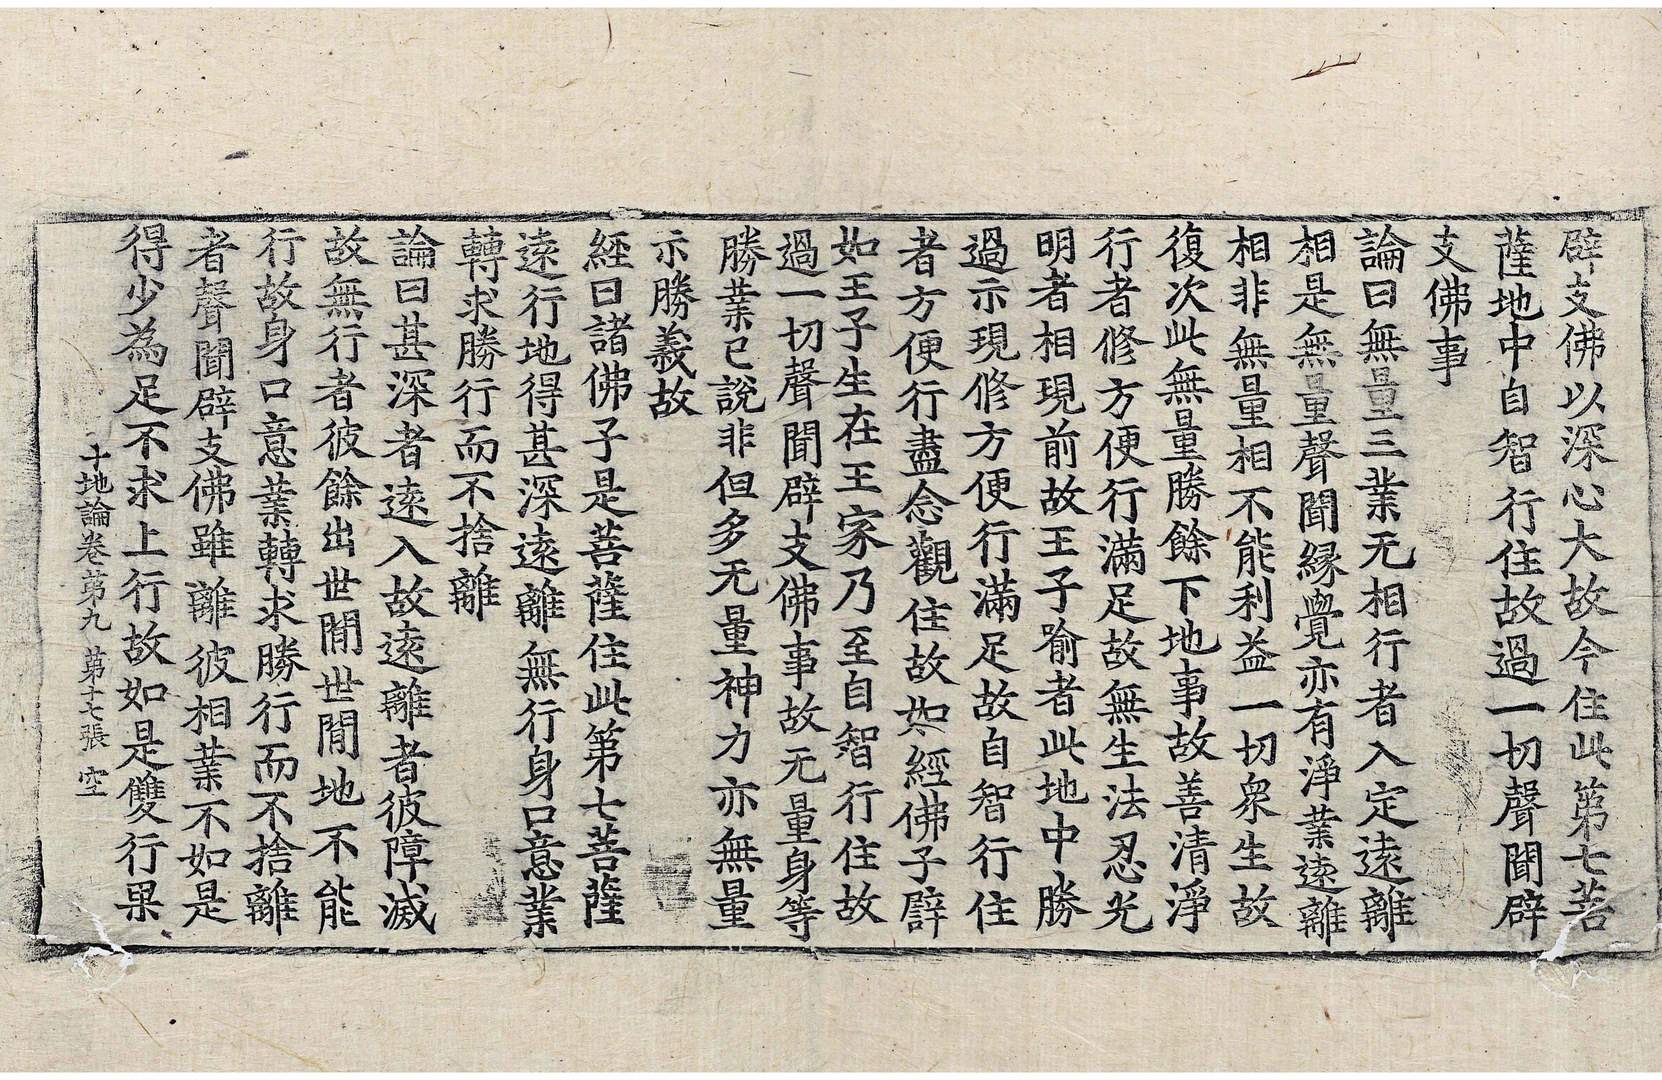 辟支佛以深心大故今住此第七菩
薩地中自智行住故過一切聲聞辟
支佛事
論曰無量三業无相行者入定遠離
相是無量聲聞縁覺亦有淨業遠離
相非無量相不能利益一切衆生故
復次此無量勝餘下地事故善清淨
行者修方便行滿足故無生法忍光
明者相現前故王子喻者此地中勝
過示現修方便行滿足故自智行住
者方便行盡念觀住故如經佛子譬
如王子生在王家乃至自智行住故
過一切聲聞辟支佛事故无量身等
勝業已說非但多无量神力亦無量
示勝義故
經曰諸佛子是菩薩住此第七菩薩
遠行地得甚深遠離無行身口意業
轉求勝行而不捨離
論曰甚深者遠入故遠離者彼障滅
故無行者彼餘出世間世間地不能
行故身口意業轉求勝行而不捨離
者聲聞辟支佛雖離彼相業不如是
得少為足不求上行故如是雙行果
十地論卷苐九　苐十七張　空